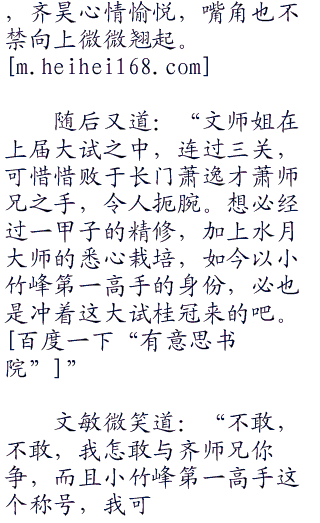 ，齐昊心情愉悦，嘴角也不
禁向上微微翘起。
[m.heihei168.com]
随后又道：“文师姐在
上届大试之中，连过三关，
可惜惜败于长门萧逸才萧师
兄之手，令人扼腕。想必经
过一甲子的精修，加上水月
大师的悉心栽培，如今以小
竹峰第一高手的身份，必也
是冲着这大试桂冠来的吧。
[百度一下“有意思书
院”]”
文敏微笑道：“不敢，
不敢，我怎敢与齐师兄你
争，而且小竹峰第一高手这
个称号，我可